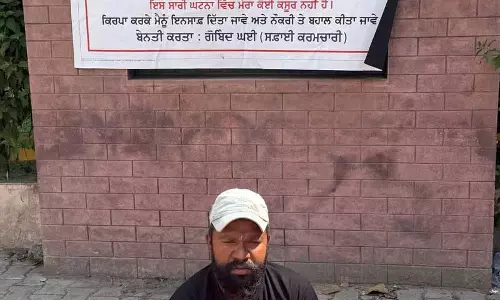 ਇਸ ਸਾਰੀ ਘਟਨਾ ਵਿੱਚ ਮੇਰਾ ਕੋਈ ਕਸੂਰ ਨਹੀਂ ਹੈ।
ਕਿਰਪਾ ਕਰਕੇ ਮੈਨੂੰ ਇਨਸਾਫ਼ ਦਿੱਤਾ ਜਾਵੇ ਅਤੇ ਨੌਕਰੀ ਤੇ ਬਹਾਲ ਕੀਤਾ ਜਾਵੇ
ਬੇਨਤੀ ਕਰਤਾ : ਗੋਬਿੰਦ ਘਈ (ਸਫ਼ਾਈ ਕਰਮਚਾਰੀ)